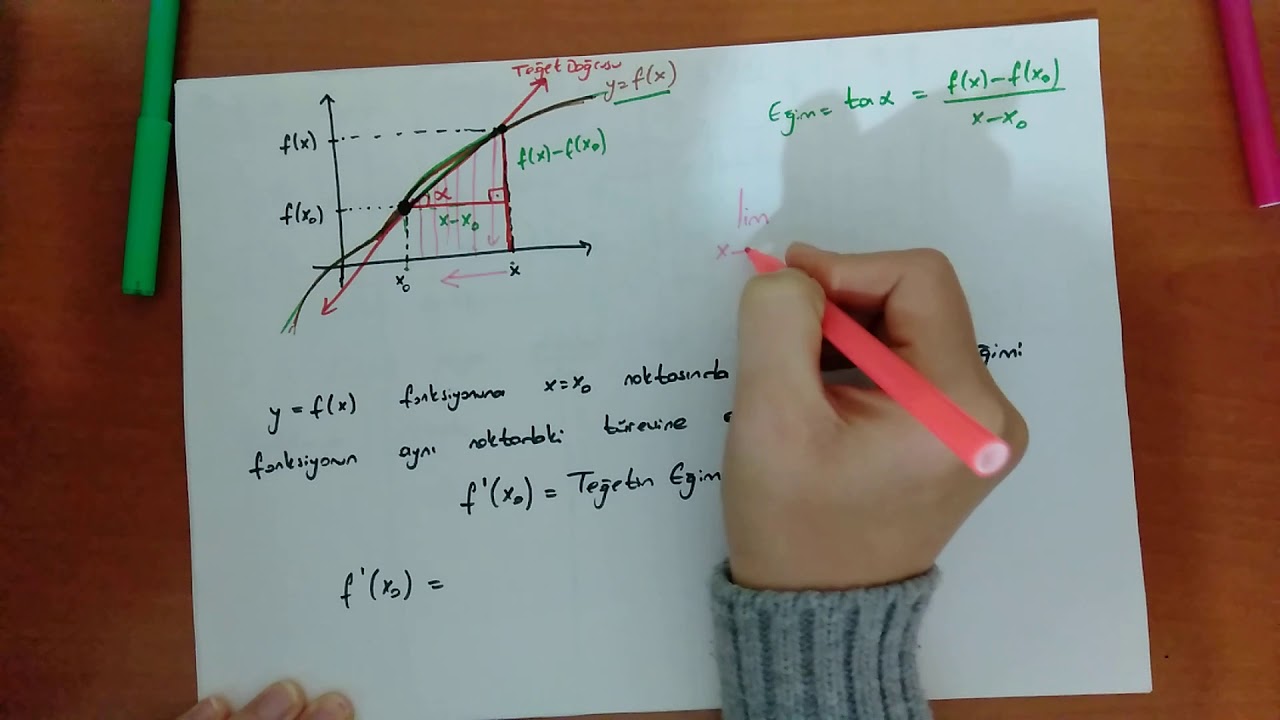 Teğet Doğrusu
y=f(x)
f(x)
f(x)-f(x₀)
f(x₀)
α
x-x₀
x₀
x
Eğim= tanα = f(x)-f(x₀)
x-x₀
lim
x→
y=f(x) fonksiyonuna x=x₀ noktasında
fonksiyonun aynı noktadaki türevine
f'(x₀) = Teğetin Eğim
f'(x₀) =